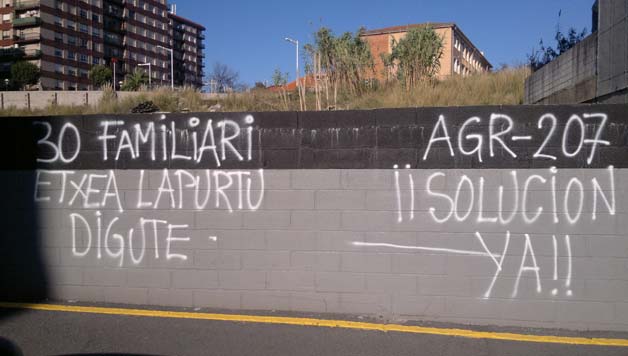 30 FAMILIARI
ETXEA LAPURTU
DIGUTE-
AGR-207
¡¡SOLUCIÓN
YA!!